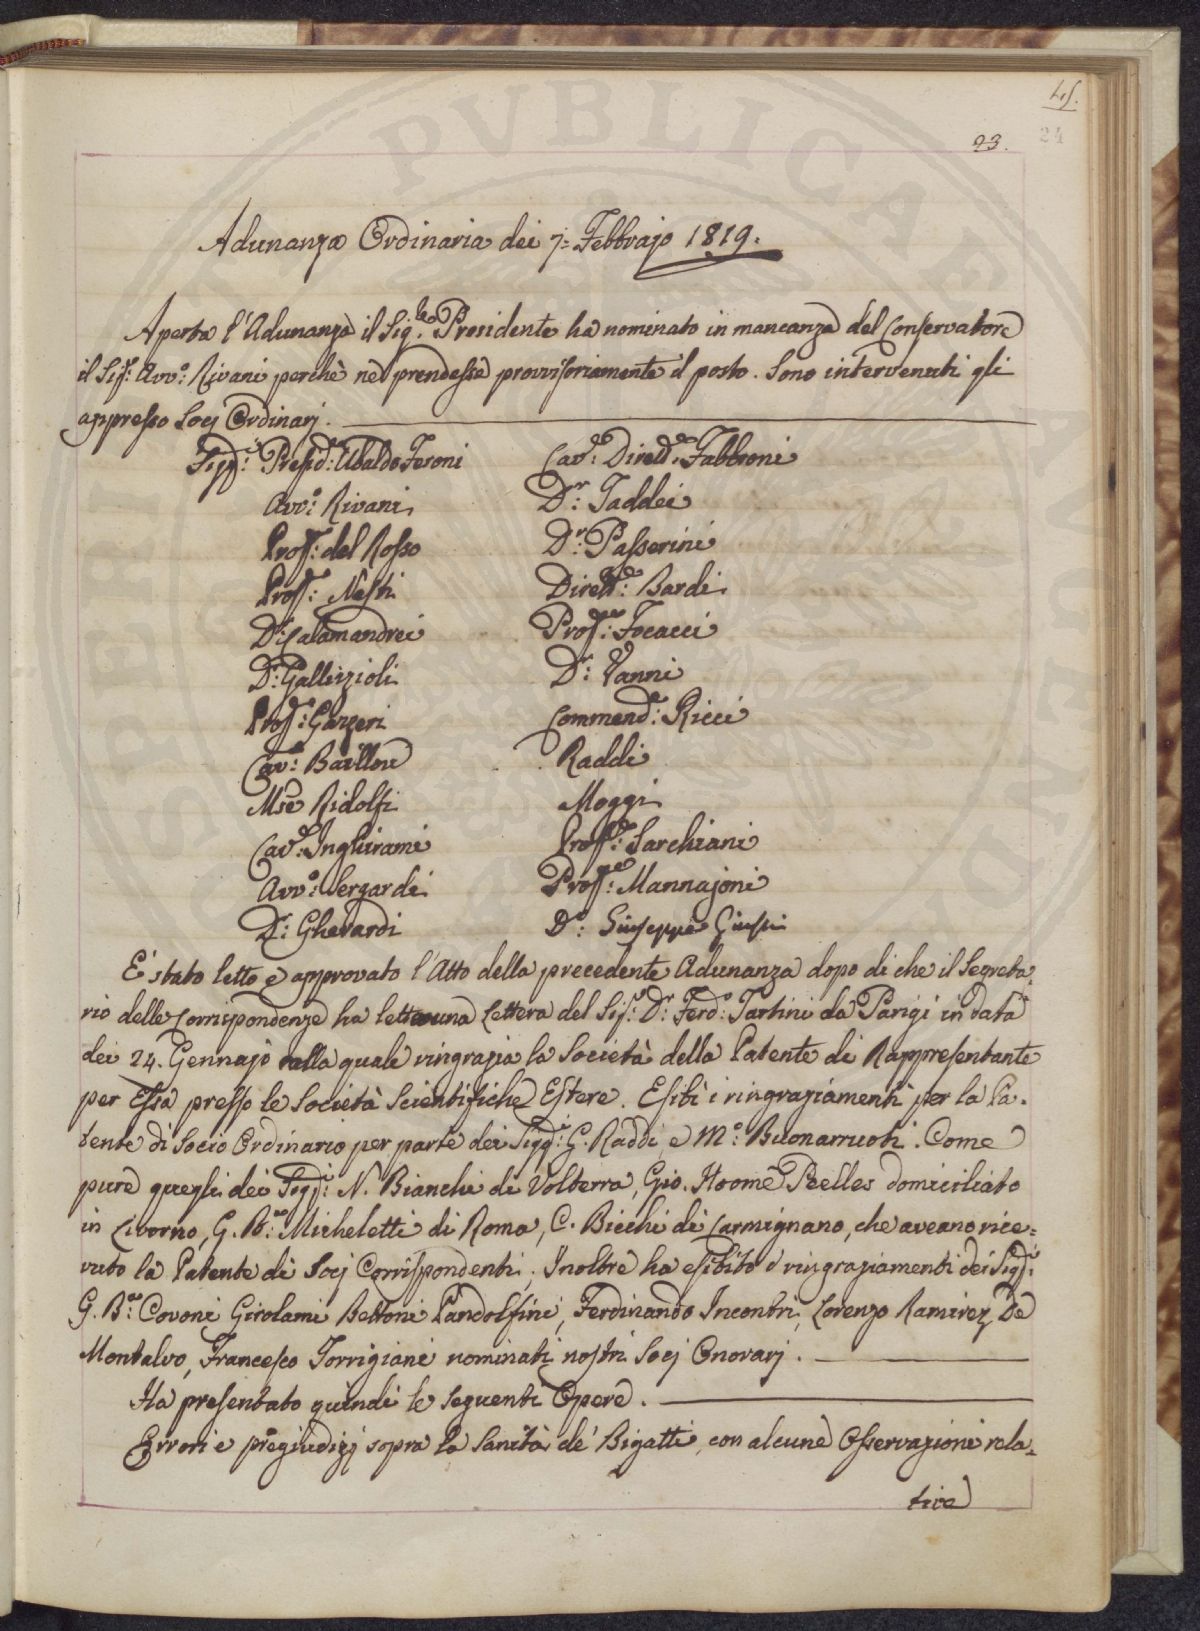 45.
23. 24
Adunanza Ordinaria dei 7= Febbrajo 1819.
Aperta l'Adunanza il Sig.re Presidente ha nominato in mancanza del Conservatore
il Sig.r Avv.o Rivani perchè ne prendesse provvisoriamente il posto. Sono intervenuti gli
appresso Socj Ordinarj.
Sigg.ri Presid.e Ubaldo Feroni Cav.e Dirett.e Fabbroni
Avv.o Rivani D.r Taddei
Prof.e del Rosso D.r Passerini
Prof.e Nesti Dirett.e Bardi
D.r Calamandrei Prof.re Focacci
D.r Gallizioli D.r Vanni
Prof.e Gazzeri Commend.e Ricci
Cav.e Baillou Raddi
Mse Ridolfi Moggi
Cav.e Inghirami Prof.e Sarchiani
Avv.o Sergardi Prof.re Mannajoni
D.r Gherardi D.r Giuseppe Giusti
E' stato letto e approvato l'Atto della precedente Adunanza dopo di che il Segreta-
rio delle Corrispondenze ha letto una Lettera del Sig.r D.r Ferd.o Tartini da Parigi in data
dei 24. Gennajo nella quale ringrazia la Società della Patente di Rappresentante
per Essa presso le Società Scientifiche Estere. Esibì i ringraziamenti per la Pa-
tente di Socio Ordinario per parte dei Sigg.ri G. Raddi, e M.o Buonarruoti. Come
pure quegli dei Sigg.ri N. Bianchi di Volterra, Gio. Hoome Pelles domiciliato
in Livorno, G. B.a Micheletti di Roma, C. Bicchi di Carmignano, che aveano rice-
vuto la Patente di Socj Corrispondenti; Inoltre ha esibito i ringraziamenti dei Sigg.ri
G. B.a Covoni Girolami Bettoni Pandolfini, Ferdinando Incontri, Lorenzo Ramirez De
Montalvo, Francesco Torrigiani nominati nostri Socj Onorarj.
Ha presentato quindi le seguenti Opere.
Errori e pregiudizj sopra la Sanità de' Bigatti, con alcune Osservazioni rela-
tive